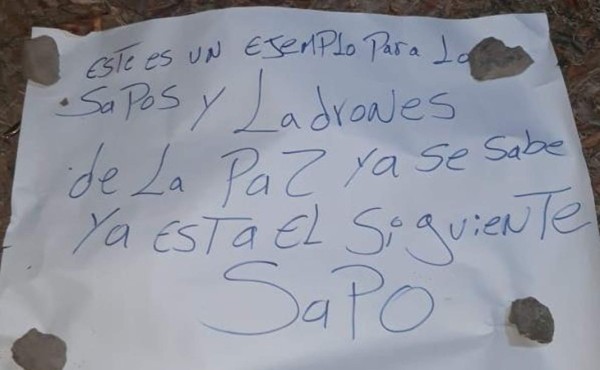 ESTE ES UN EJEMPLO PARA LO
SAPOS Y LadroNES
de La PaZ Ya Se Sabe
Ya ESTA EL SiguieNTe
SaPO